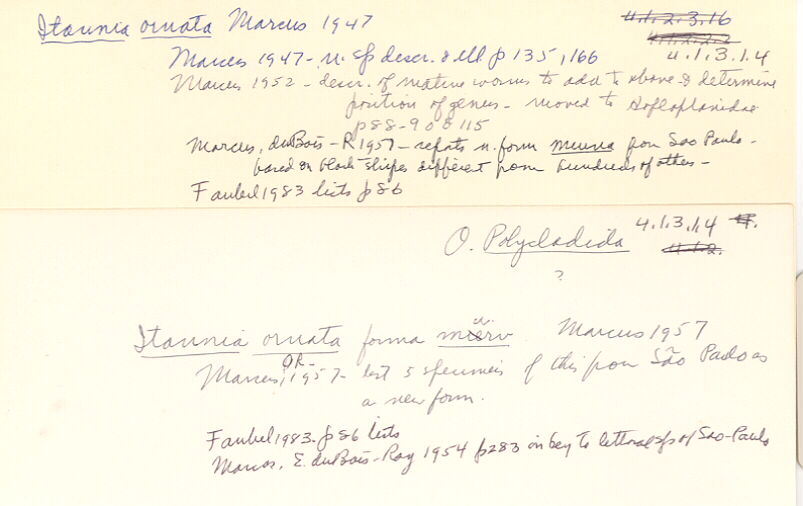 Itannia ornata Marcus 1947
4.1.2.3.16
4.1.2.2.2
4.1.3.1.4
Marcus 1947 - n. sp descr. & ill p 135, 166
Marcus 1952 - descr. of mature worms to add to above & determine
position of genus - moved to Hofloplanidae
p 88-90 & 115
Marcus, duBois-R 1957 - repats n. form murna from Sao Paulo -
based on black stripes different from hundreds of others -
Faubel 1983 lists p 86
O. Polycladida
4.1.3.1.4
4.1.2.
?
Itannia ornata forma Marcus 1957
Marcus, DR- 1957 - list 5 specimens of this from São Paulo as
a new form.
Faubel 1983 - p 86 lists
Marcus, E. duBois-Ray 1954 p283 in key to littoral sp of Sao-Paulo